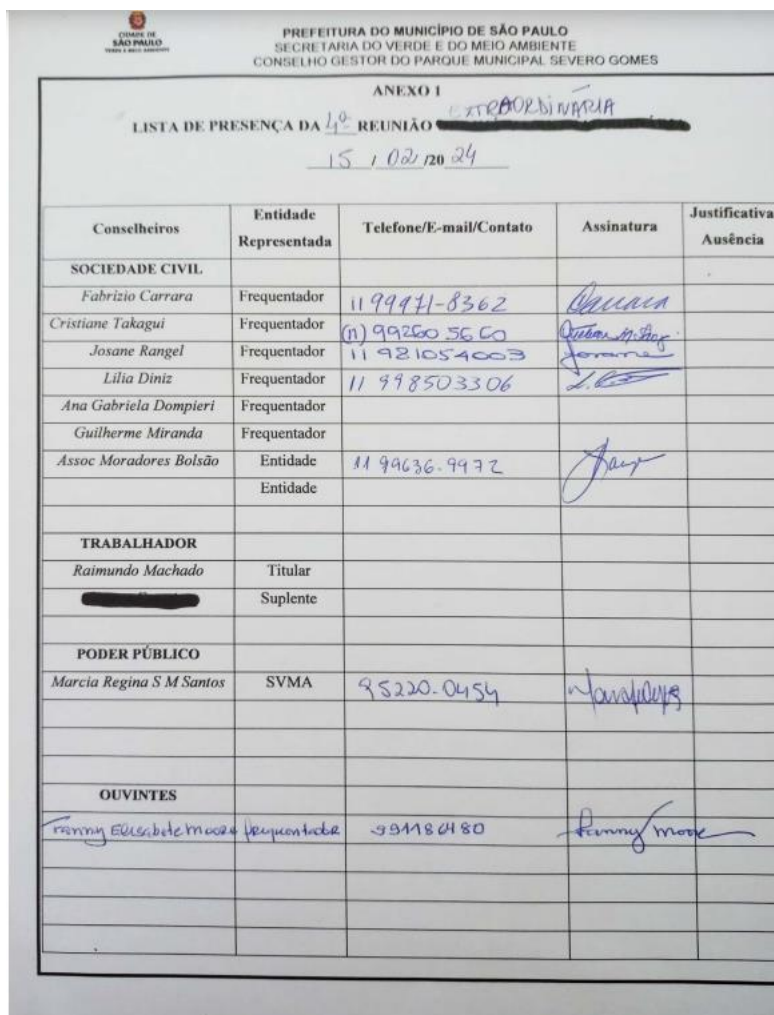 CIDADE DE
SÃO PAULO
VERDE E MEIO AMBIENTE
PREFEITURA DO MUNICÍPIO DE SÃO PAULO
SECRETARIA DO VERDE E DO MEIO AMBIENTE
CONSELHO GESTOR DO PARQUE MUNICIPAL SEVERO GOMES
ANEXO 1
LISTA DE PRESENÇA DA 4ª REUNIÃO EXTRAORDINÁRIA
15 / 02 /20 24
Conselheiros Entidade Representada Telefone/E-mail/Contato Assinatura Justificativa Ausência
SOCIEDADE CIVIL
Fabrizio Carrara Frequentador 11 99471-8362 Carrara
Cristiane Takagui Frequentador (11) 99260 5660
Josane Rangel Frequentador 11 981054003 Josane
Lília Diniz Frequentador 11 998503306
Ana Gabriela Dompieri Frequentador
Guilherme Miranda Frequentador
Assoc Moradores Bolsão Entidade 11 99636-9972
Entidade
TRABALHADOR
Raimundo Machado Titular
Suplente
PODER PÚBLICO
Marcia Regina S M Santos SVMA 95220-0454
OUVINTES
Fanny Elisabete Moore frequentador 991186480 Fanny Moore